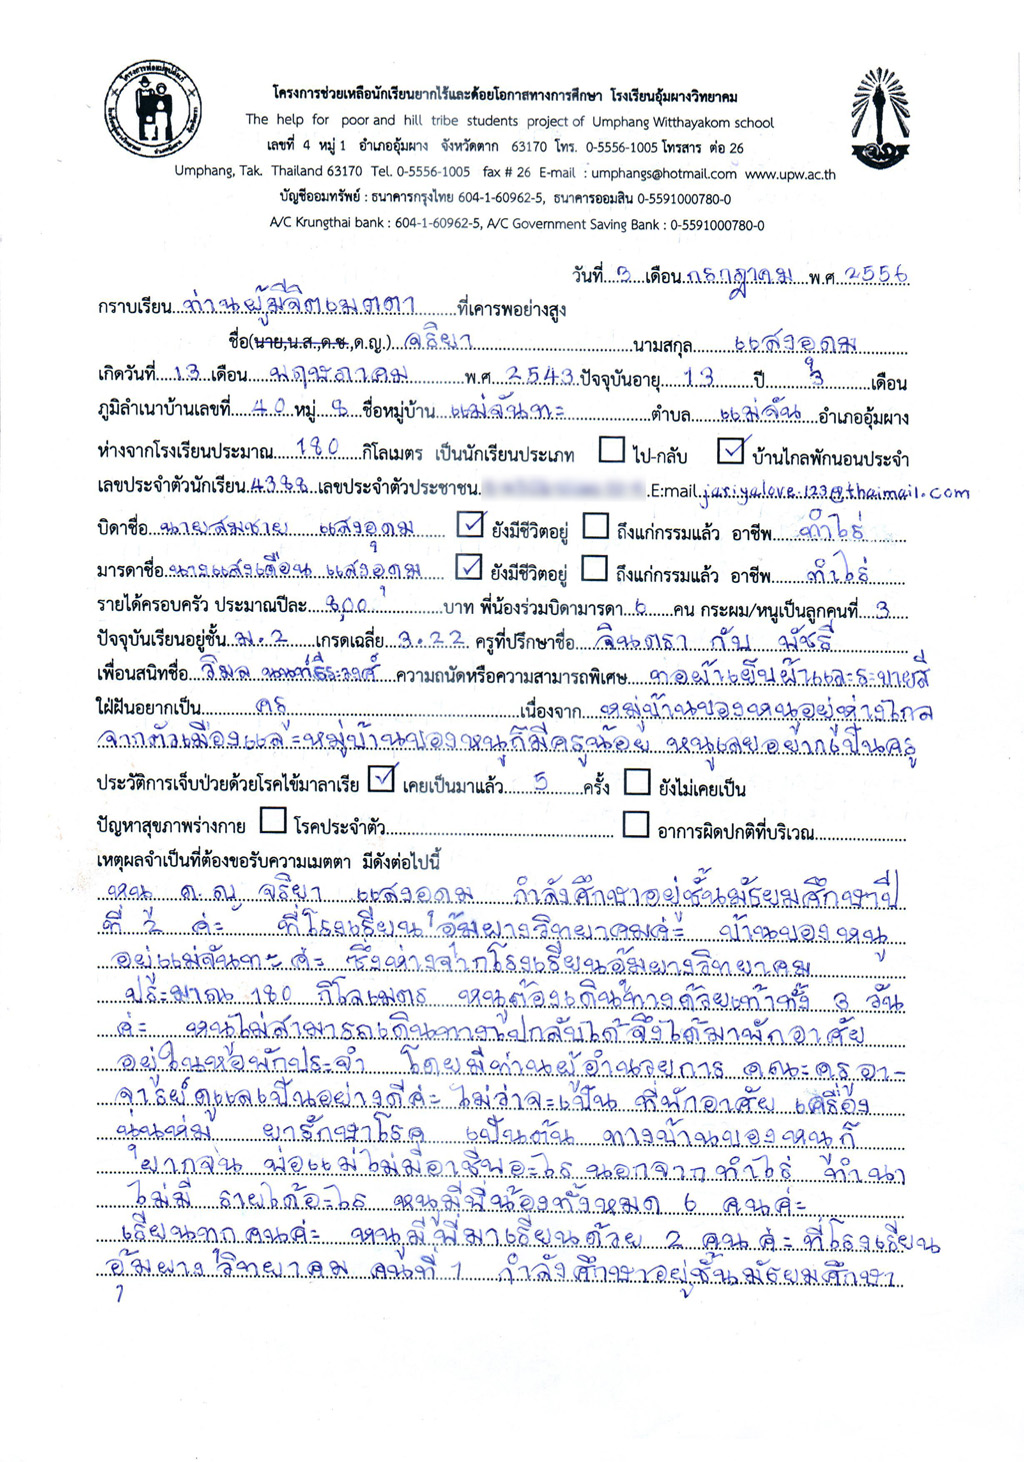 โครงการช่วยเหลือนักเรียนยากไร้และด้อยโอกาสทางการศึกษา โรงเรียนอุ้มผางวิทยาคม
The help for poor and hill tribe students project of Umphang Witthayakom school
เลขที่ 4 หมู่ 1 อำเภออุ้มผาง จังหวัดตาก 63170 โทร. 0-5556-1005 โทรสาร ต่อ 26
Umphang, Tak. Thailand 63170 Tel. 0-5556-1005 fax # 26 E-mail : umphangs@hotmail.com www.upw.ac.th
บัญชีออมทรัพย์ : ธนาคารกรุงไทย 604-1-60962-5, ธนาคารออมสิน 0-5591000780-0
A/C Krungthai bank : 604-1-60962-5, A/C Government Saving Bank : 0-5591000780-0
วันที่ 3 เดือน กรกฎาคม พ.ศ. 2556
กราบเรียน ท่านผู้มีจิตเมตตา ที่เคารพอย่างสูง
ชื่อ(นาย,น.ส.,ด.ช.,ด.ญ.) จริยา นามสกุล แสงอุดม
เกิดวันที่ 13 เดือน พฤษภาคม พ.ศ. 2543 ปัจจุบันอายุ 13 ปี 3 เดือน
ภูมิลำเนาบ้านเลขที่ 40 หมู่ 8 ชื่อหมู่บ้าน แม่จันทะ ตำบล แม่จัน อำเภออุ้มผาง
ห่างจากโรงเรียนประมาณ 180 กิโลเมตร เป็นนักเรียนประเภท ไป-กลับ บ้านไกลพักนอนประจำ
เลขประจำตัวนักเรียน 4388 เลขประจำตัวประชาชน E:mail jariyalove.123@thaimail.com
บิดาชื่อ นายสมชาย แสงอุดม ยังมีชีวิตอยู่ ถึงแก่กรรมแล้ว อาชีพ ทำไร่
มารดาชื่อ นางแสงเดือน แสงอุดม ยังมีชีวิตอยู่ ถึงแก่กรรมแล้ว อาชีพ ทำไร่
รายได้ครอบครัว ประมาณปีละ 800 บาท พี่น้องร่วมบิดามารดา 6 คน กระผม/หนูเป็นลูกคนที่ 3
ปัจจุบันเรียนอยู่ชั้น ม.2 เกรดเฉลี่ย 3.22 ครูที่ปรึกษาชื่อ จินตรา กับ พัชรี
เพื่อนสนิทชื่อ วิมล ความถนัดหรือความสามารถพิเศษ ทอผ้าเย็บผ้าและระบายสี
ใฝ่ฝันอยากเป็น ครู เนื่องจาก หมู่บ้านของหนูอยู่ห่างไกล
จากตัวเมืองและหมู่บ้านของหนูก็มีครูน้อย หนูเลยอยากเป็นครู
ประวัติการเจ็บป่วยด้วยโรคไข้มาลาเรีย เคยเป็นมาแล้ว 5 ครั้ง ยังไม่เคยเป็น
ปัญหาสุขภาพร่างกาย โรคประจำตัว อาการผิดปกติที่บริเวณ
เหตุผลจำเป็นที่ต้องขอรับความเมตตา มีดังต่อไปนี้
หนู ด.ญ จริยา แสงอุดม กำลังศึกษาอยู่ชั้นมัธยมศึกษาปี
ที่ 2 ค่ะ ที่โรงเรียนอุ้มผางวิทยาคมค่ะ บ้านของหนู
อยู่แม่จันทะ ค่ะ ซึ่งห่างจากโรงเรียนอุ้มผางวิทยาคม
ประมาณ 180 กิโลเมตร หนูต้องเดินทางด้วยเท้าทั้ง 3 วัน
ค่ะ หนูไม่สามารถเดินทางไปกลับได้ จึงได้มาพักอาศัย
อยู่ในหอพักประจำ โดยมีท่านผู้อำนวยการ คณะครูอา-
จารย์ดูแลเป็นอย่างดีค่ะ ไม่ว่าจะเป็น ที่พักอาศัย เครื่อง
นุ่นห่ม ยารักษาโรค เป็นต้น ทางบ้านของหนูก็
ยากจน พ่อแม่ไม่มีอาชีพอะไร นอกจาก ทำไร่ ทำนา
ไม่มี รายได้อะไร หนูมีพี่น้องทั้งหมด 6 คนค่ะ
เรียนทุกคนค่ะ หนูมีพี่มาเรียนด้วย 2 คน ค่ะ ที่โรงเรียน
อุ้มผางวิทยาคม คนที่ 1 กำลังศึกษาอยู่ชั้นมัธยมศึกษา